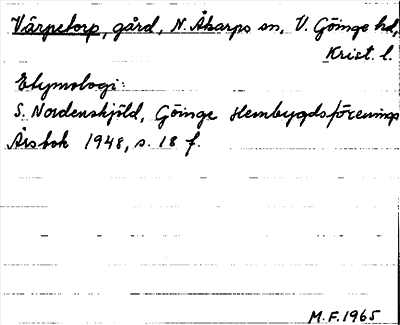 Värpetorp, gård, N. Åkarps sn, V. Göinge hd,
Krist. l.
Etymologi:
S. Nordenskjöld, Göinge Hembygdsförenings
Årsbok 1948, s. 18 f.
M.F. 1965